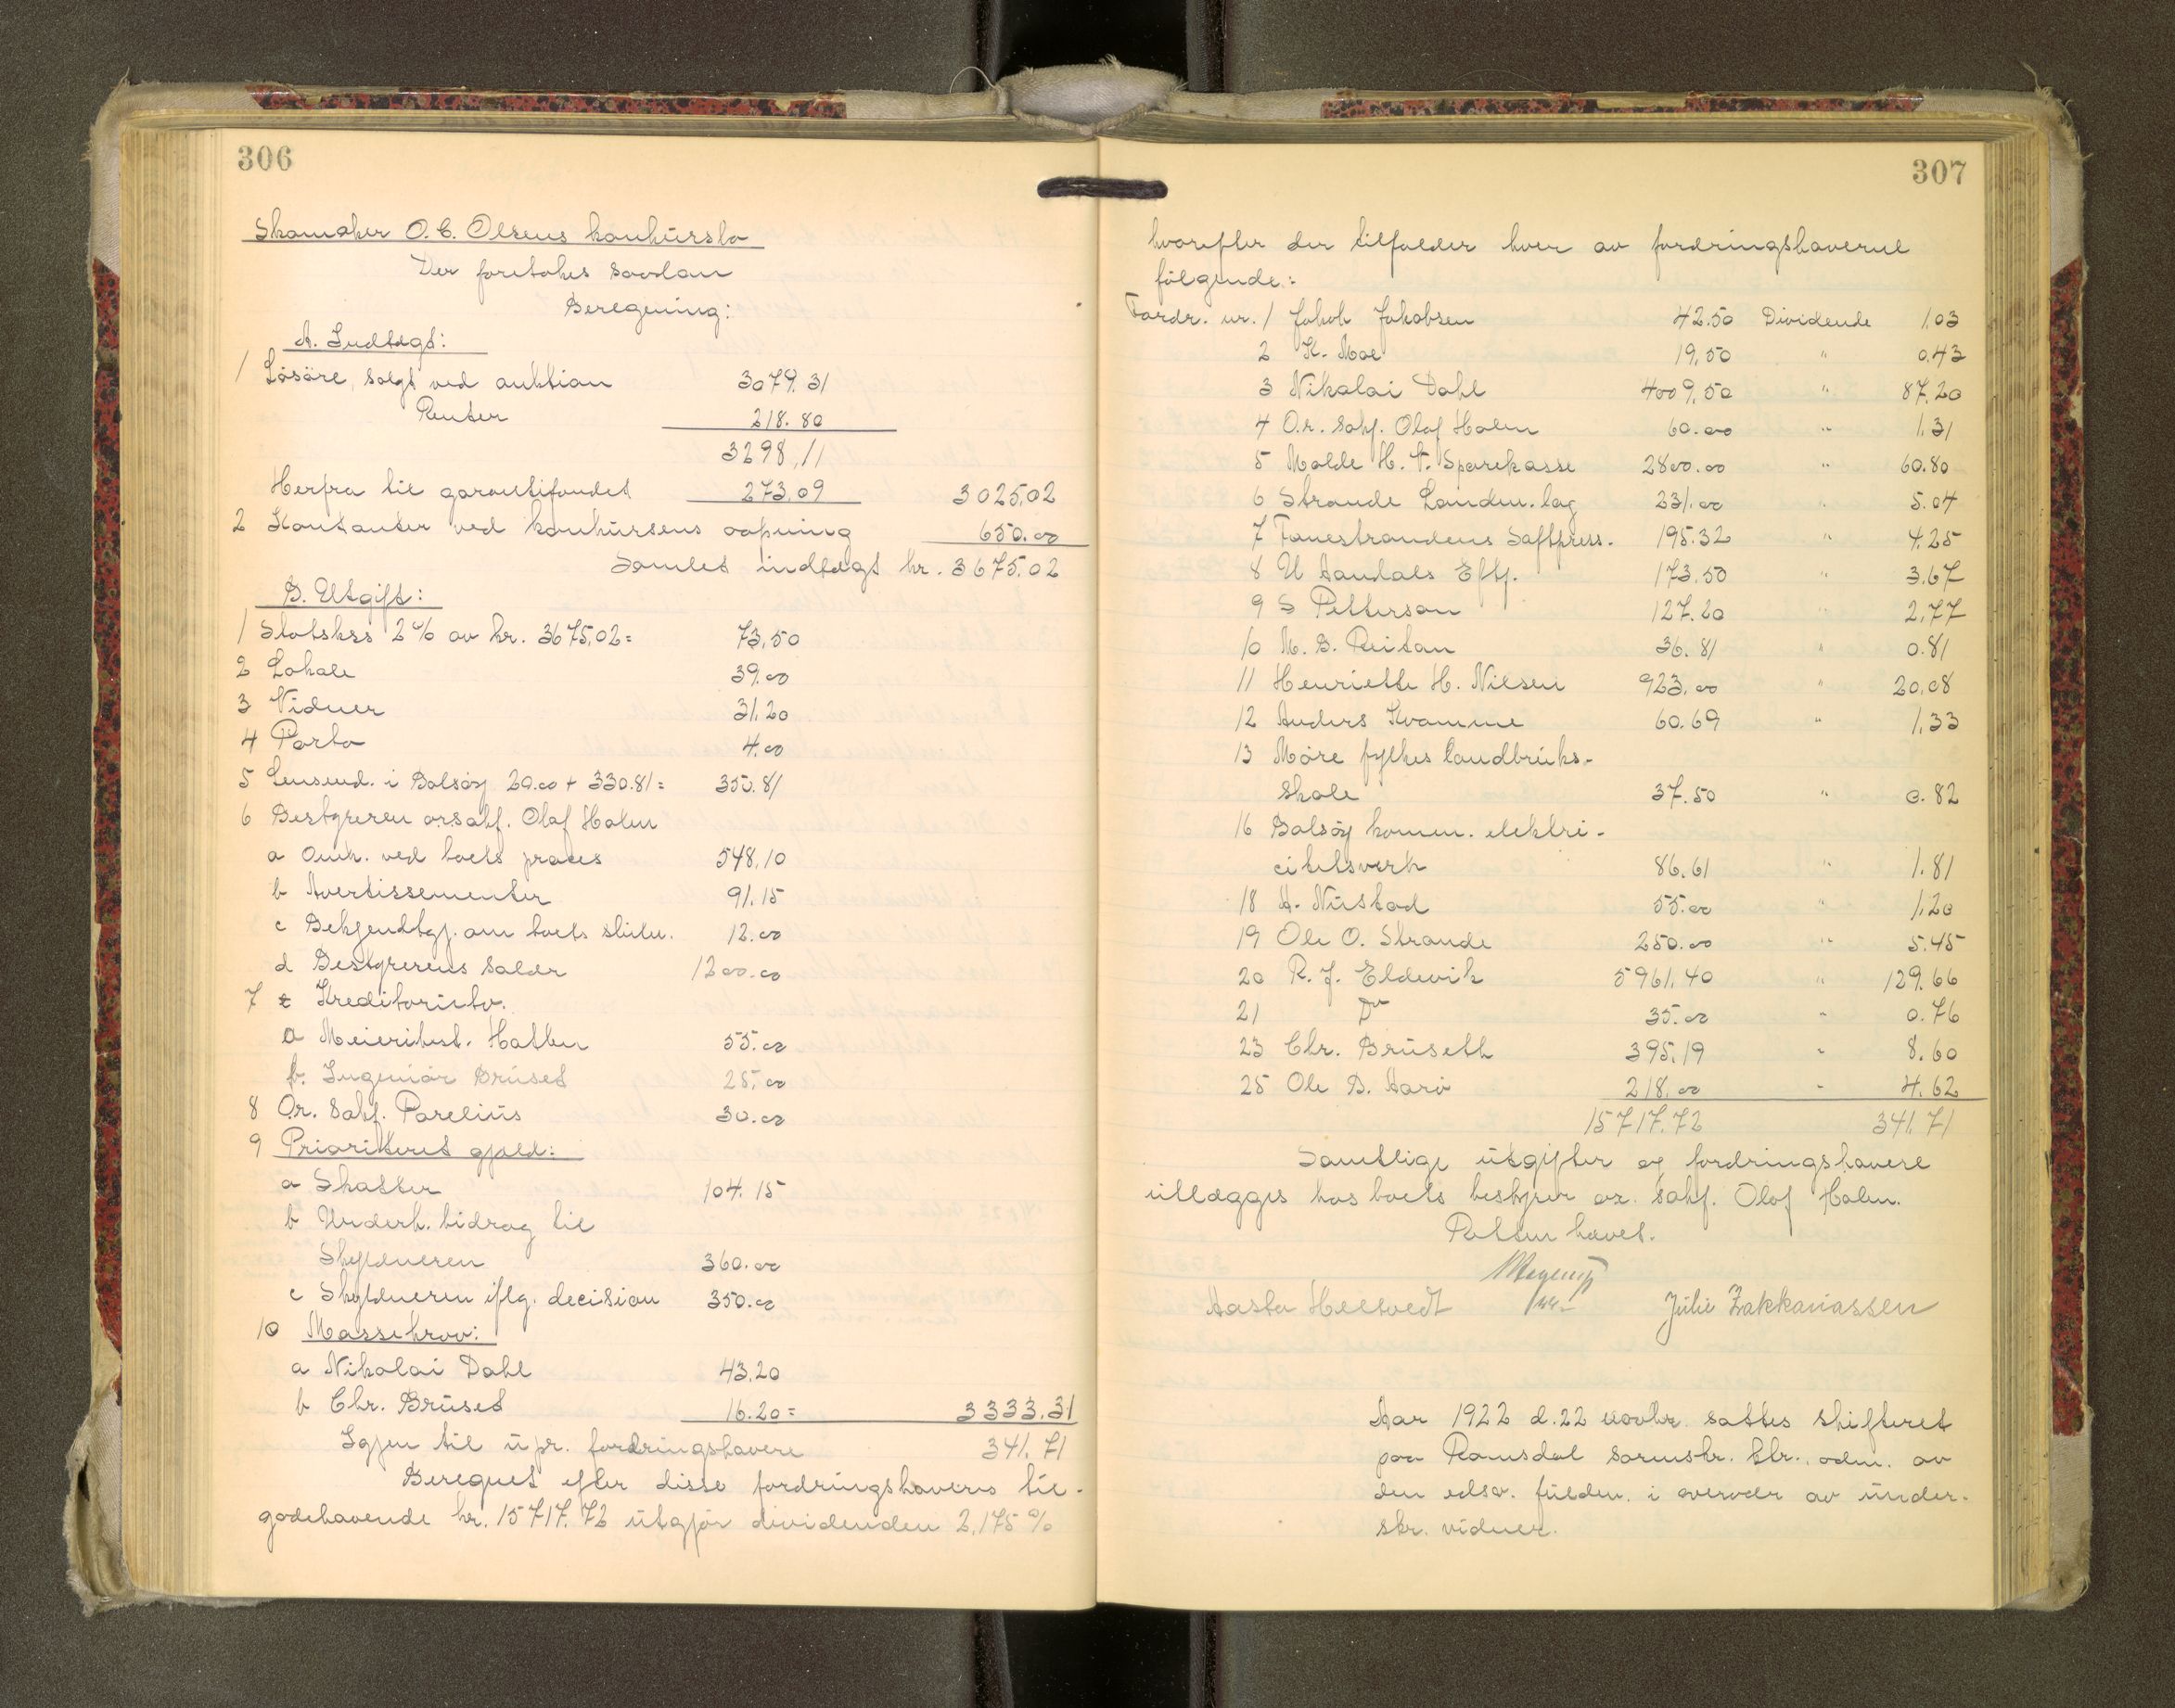 306
Skomaker O. C. Olsens konkursbo
Der foretokes saadan
Beregning:
A. Indtægt:
1 Løsøre, solgt ved auktion 3079.31
Renter 218.80
3298.11
Herfra til garantifondet 273.09 3025.02
2 Kontanter ved konkursens aapning 650.00
Samlet indtægt kr. 3675.02
B. Utgift:
1 Statskss 2% av kr. 3675.02 = 73.50
2 Lokale 39.00
3 Vidner 31.20
4 Porto 4.00
5 Lensmd. i Bolsøy 20.00 + 330.81 = 350.81
6 Bestyreren orsakf. Olaf Holm
a Omk. ved boets proces 548.10
b Avertissementer 91.15
c Bekjendtgj. om boets slutn. 12.00
d Bestyrerens salær 1200.00
7 Kreditorutv.
a Meieribest. Hatlen 55.00
b. Ingeniør Bruset 25.00
8 Or. sakf. Parelius 30.00
9 Prioritert gjæld:
a Skatter 104.15
b Underh. bidrag til
Skyldneren 360.00
c Skyldneren iflg. decision 350.00
10 Massekrav:
a Nikolai Dahl 43.20
b Chr. Bruset 16.20 = 3333.31
Igjen til upr. fordringshavere 341.71
Beregnet efter disse fordringshaveres til-
godehavende kr. 15717.72 utgjør dividenden 2,175 %
307
hvorefter der tilfalder hver av fordringshaverne
følgende:
Fordr. nr. 1 Jakob Jakobsen 42.50 Dividende 1.03
2 K. Moe 19.50 " 0.43
3 Nikolai Dahl 4009.50 " 87.20
4 O.r. sakf. Olaf Holm 60.00 " 1.31
5 Molde H. & Sparekasse 2800.00 " 60.80
6 Strande Landm. lag 231.00 " 5.04
7 Fanestrandens Saftpress. 195.32 " 4.25
8 U Aandals Eftf. 173.50 " 3.67
9 S Petterson 127.20 " 2.77
10 M. B. Reitan 36.81 " 0.81
11 Henriette H. Nilsen 923.00 " 20.08
12 Anders Kvamme 60.69 " 1.33
13 Møre fylkes landbruks-
skole 37.50 " 0.82
16 Bolsøy komm. elektri-
citetsverk 86.61 " 1.81
18 A. Nustad 55.00 " 1.20
19 Ole O. Strande 250.00 " 5.45
20 R. J. Eldevik 5961.40 " 129.66
21 Do 35.00 " 0.76
23 Chr. Bruseth 395.19 " 8.60
25 Ole B. Aarø 218.00 " 4.62
15717.72 341.71
Samtlige utgifter og fordringshavere
utlægges hos boets bestyrer or. sakf. Olaf Holm.
Retten hævet.
Aasta Heltvedt Julie Zakkariassen
Aar 1922 d. 22 novbr. sattes skifteret
paa Romsdal sorenskr. ktr., adm. av
den edsv. fuldm. i overvær av under-
skr. vidner.